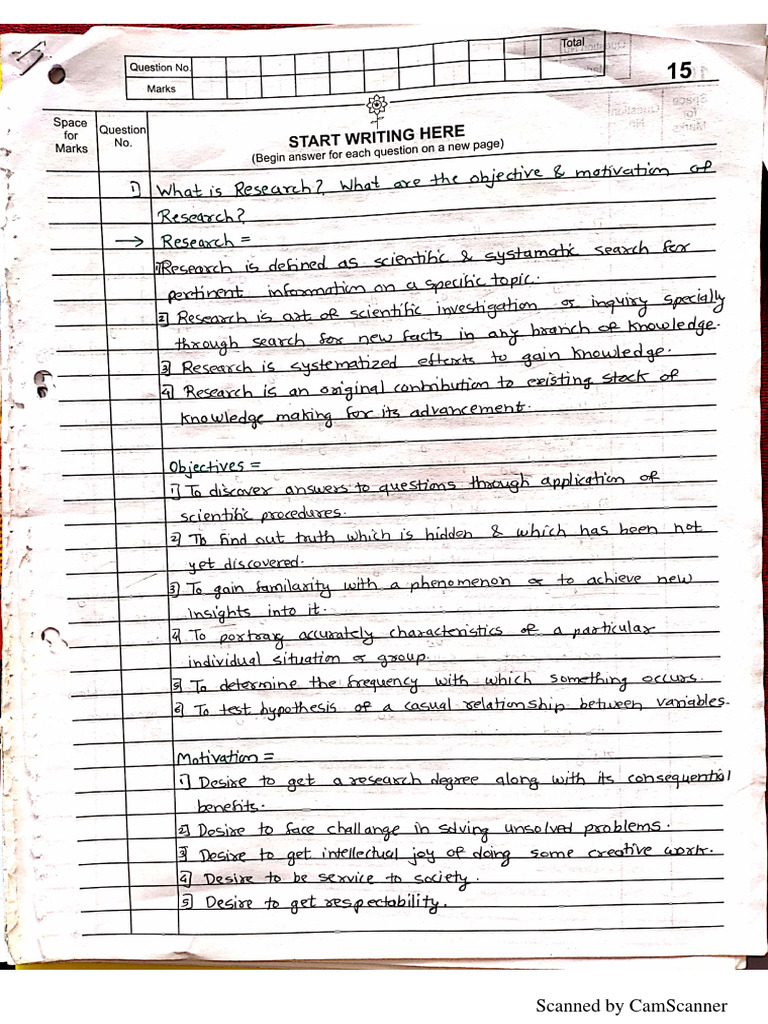 Question No. Total
Marks
15
Space for Marks
Question No.
START WRITING HERE
(Begin answer for each question on a new page)
1) What is Research? What are the objective & motivation of
Research?
→ Research =
1) Research is defined as scientific & systamatic search for
pertinent information on a specific topic.
2) Research is art of scientific investigation or inquiry specially
through search for new facts in any branch of knowledge.
3) Research is systematized efforts to gain knowledge.
4) Research is an original contribution to existing stock of
knowledge making for its advancement.
Objectives =
1) To discover answers to questions through application of
scientific procedures.
2) To find out truth which is hidden & which has been not
yet discovered.
3) To gain familarity with a phenomenon or to achieve new
insights into it.
4) To portray accurately characteristics of a particular
individual situation or group.
5) To determine the frequency with which something occurs.
6) To test hypothesis of a casual relationship between variables.
Motivation =
1) Desire to get a research degree along with its consequential
benefits.
2) Desire to face challange in solving unsolved problems.
3) Desire to get intellectual joy of doing some creative work.
4) Desire to be service to society.
5) Desire to get respectability.
Scanned by CamScanner